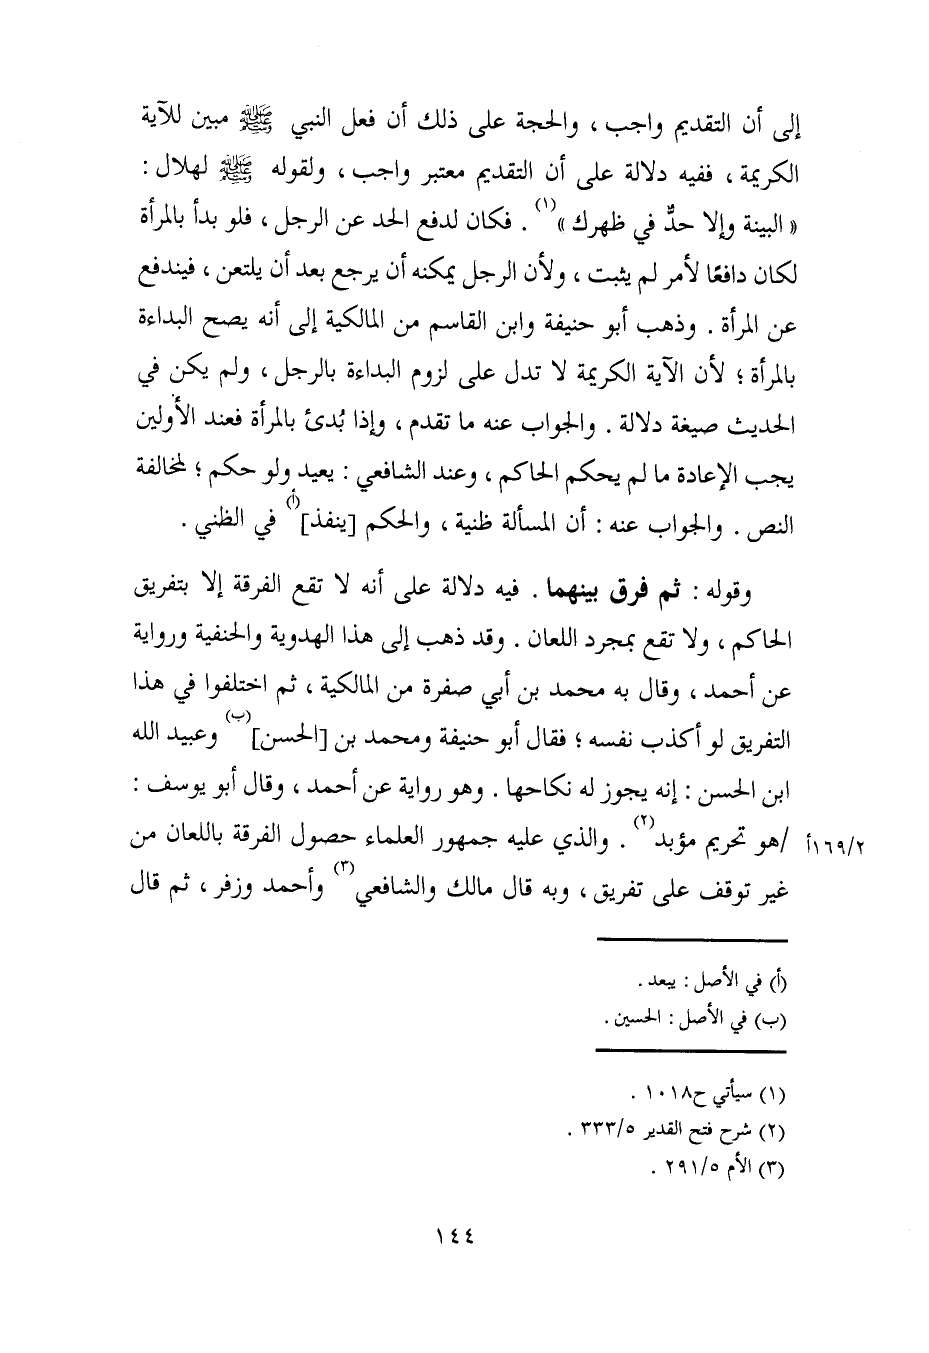 إلى أن التقديم واجب ، والحجة على ذلك أن فعل النبي ﷺ مبين للآية
الكريمة ، ففيه دلالة على أن التقديم معتبر واجب ، ولقوله ﷺ لهلال :
« البينة وإلا حدٌّ في ظهرك »(١) . فكان لدفع الحد عن الرجل ، فلو بدأ بالمرأة
لكان دافعًا لأمر لم يثبت ، ولأن الرجل يمكنه أن يرجع بعد أن يلتعن ، فيندفع
عن المرأة . وذهب أبو حنيفة وابن القاسم من المالكية إلى أنه يصح البداءة
بالمرأة ؛ لأن الآية الكريمة لا تدل على لزوم البداءة بالرجل ، ولم يكن في
الحديث صيغة دلالة . والجواب عنه ما تقدم ، وإذا بُدئ بالمرأة فعند الأولين
يجب الإعادة ما لم يحكم الحاكم ، وعند الشافعي : يعيد ولو حكم ؛ لمخالفة
النص . والجواب عنه : أن المسألة ظنية ، والحكم [ينفذ](أ) في الظني .
وقوله : ثم فرق بينهما . فيه دلالة على أنه لا تقع الفرقة إلا بتفريق
الحاكم ، ولا تقع بمجرد اللعان . وقد ذهب إلى هذا الهدوية والحنفية ورواية
عن أحمد ، وقال به محمد بن أبي صفرة من المالكية ، ثم اختلفوا في هذا
التفريق لو أكذب نفسه ؛ فقال أبو حنيفة ومحمد بن [الحسن](ب) وعبيد الله
ابن الحسن : إنه يجوز له نكاحها . وهو رواية عن أحمد ، وقال أبو يوسف :
١٦٩/٢أ /هو تحريم مؤبد(٢) . والذي عليه جمهور العلماء حصول الفرقة باللعان من
غير توقف على تفريق ، وبه قال مالك والشافعي(٣) وأحمد وزفر ، ثم قال
(أ) في الأصل : يبعد .
(ب) في الأصل : الحسين .
(١) سيأتي ح١٠١٨ .
(٢) شرح فتح القدير ٣٣٣/٥ .
(٣) الأم ٢٩١/٥ .
١٤٤